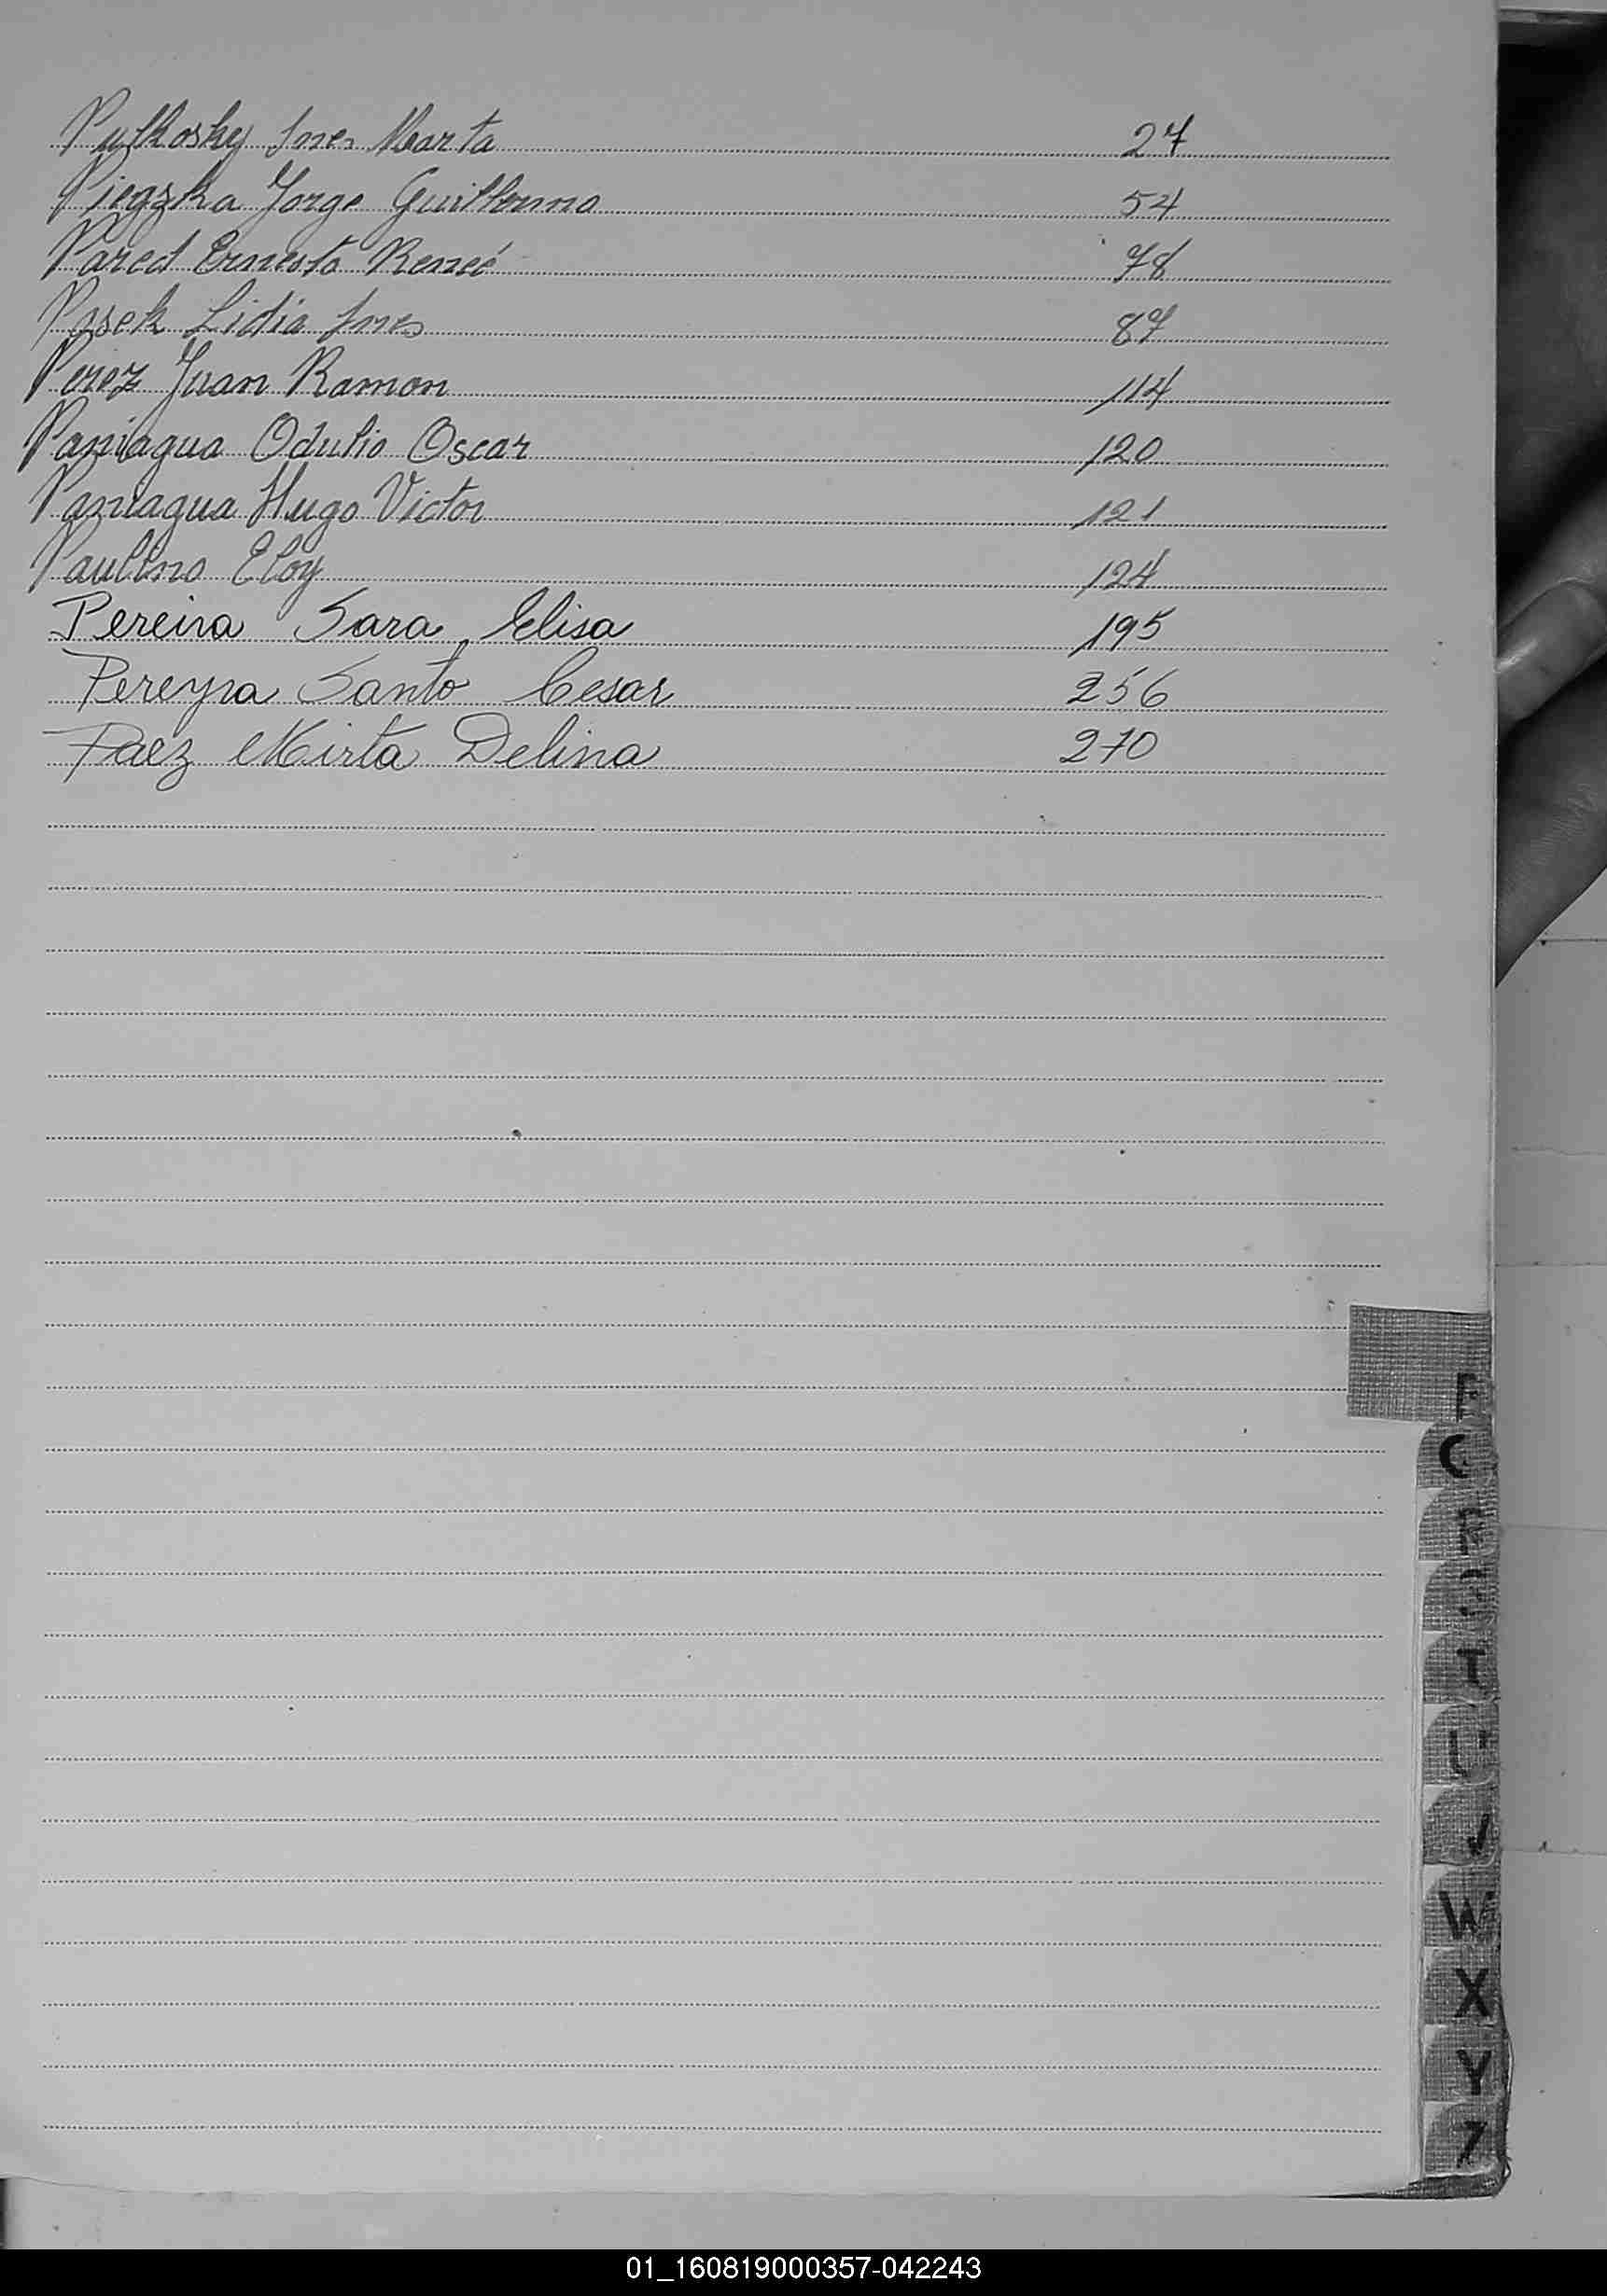 Putkosky Ines Marta 27
Piegzka Jorge Guillermo 54
Pared Ernesto Reneé 78
Pasek Lidia Ines 87
Perez Juan Ramon 114
Paniagua Odulio Oscar 120
Paniagua Hugo Victor 121
Paulino Eloy 124
Pereira Sara Elisa 195
Pereyra Santo Cesar 256
Paez Mirta Delina 270
P
Q
R
T
U
V
W
X
Y
Z
01_160819000357-042243